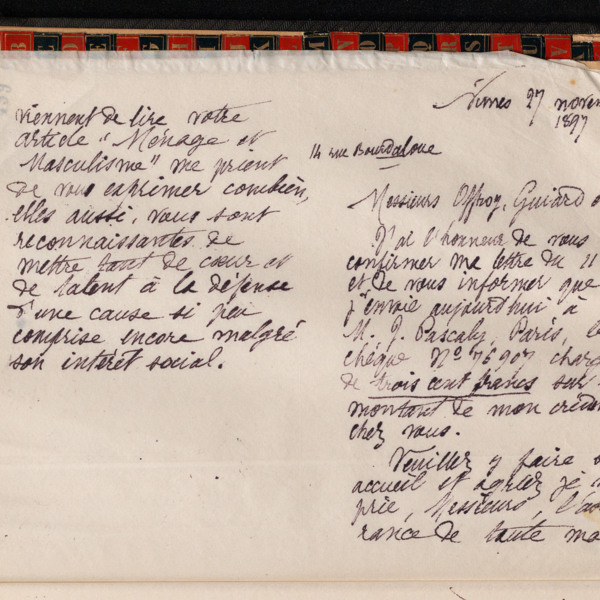 viennent de lire votre
article "Ménage et
Masculisme" me prient
de vous exprimer combien,
elles aussi, vous sont
reconnaissantes de
mettre tant de cœur et
de talent à la défense
d'une cause si peu
comprise encore malgré
son intérêt social.
Nîmes 27 novem
1897
14 rue Bourdaloue
Messieurs Offroy, Guiard
J'ai l'honneur de vous
confirmer ma lettre du 11
et de vous informer que
j'envoie aujourd'hui à
M. J. Pascaly, Paris, le
chèque No 76907
de trois cent francs sur
montant de mon crédit
chez vous.
Veuillez y faire
accueil et agréer je
prie, Messieurs,
rance de toute